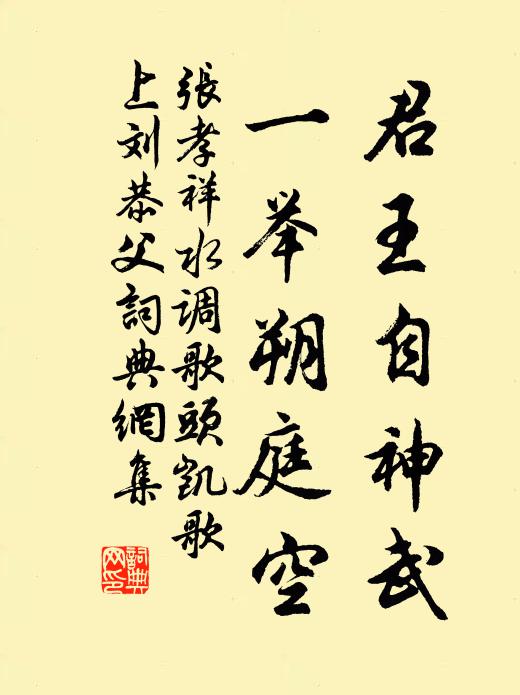 君王自神武
一举朔庭空
張孝祥水调歌頭凱歌
上刘恭父詞典網集
詞典网印